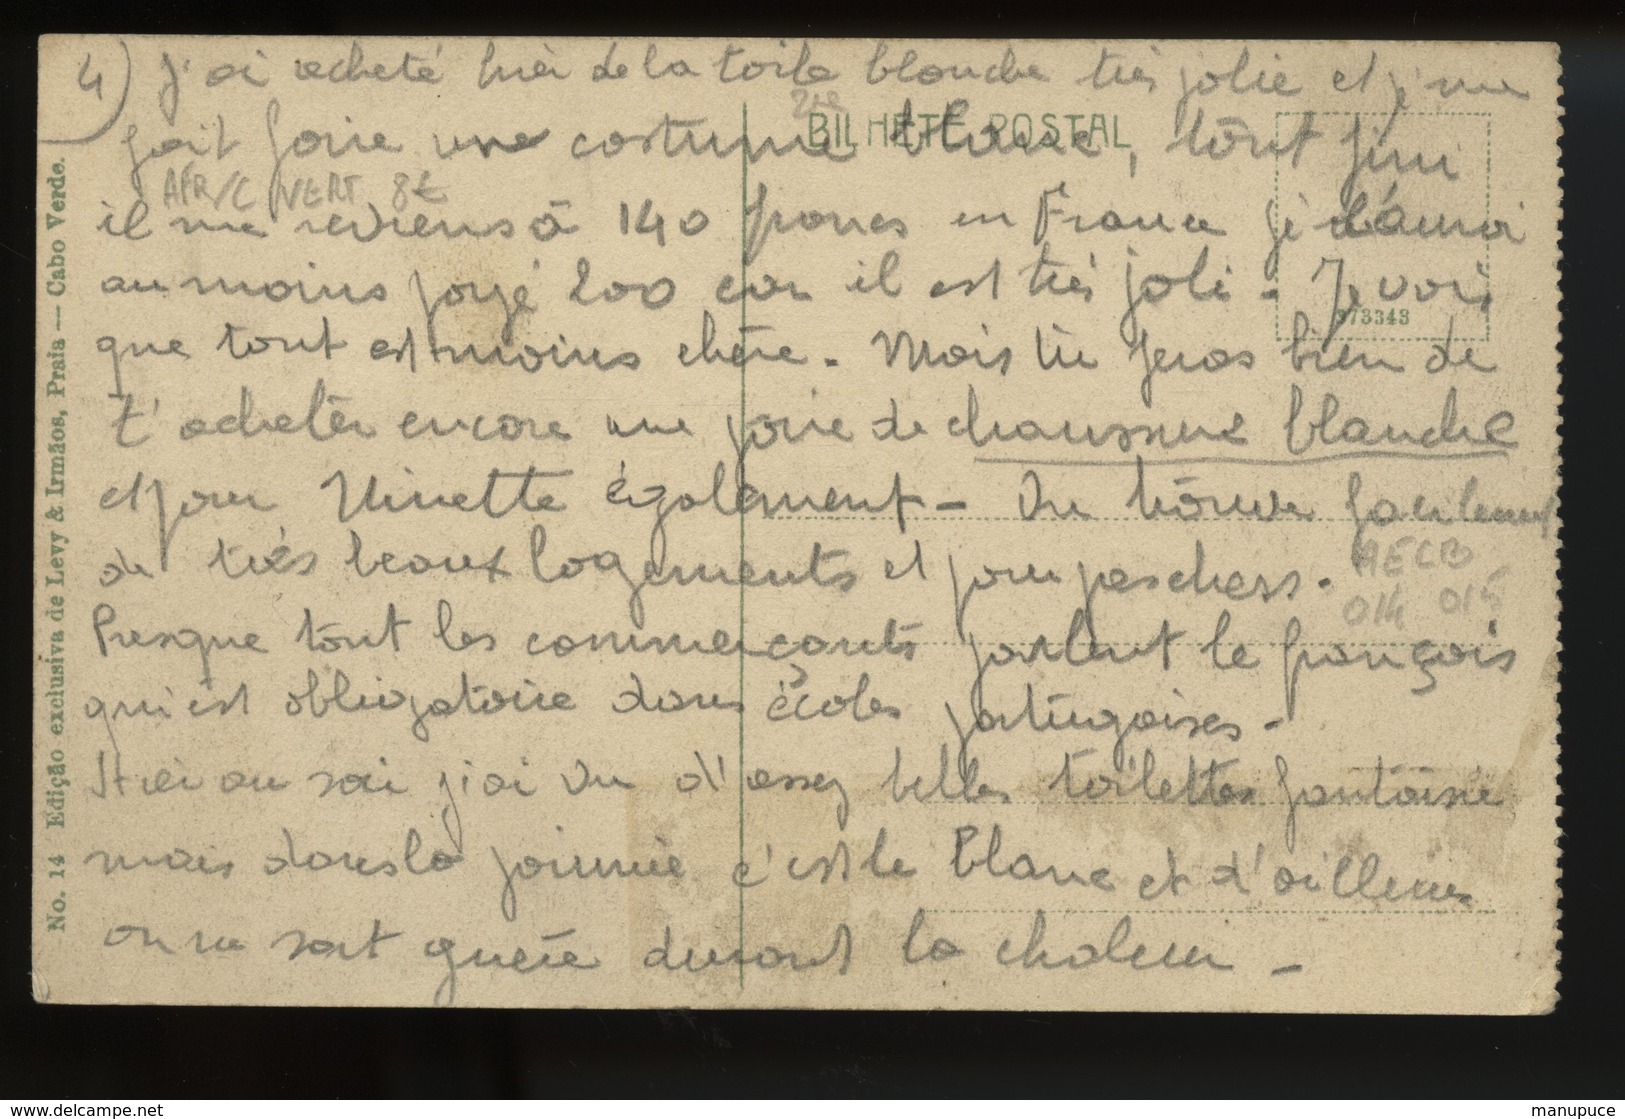 4) J'ai acheté hier de la toile blanche très jolie et j'me
BILHETE POSTAL
fait faire une costume blanc, tout fini
AFR/C VERT 8€
il me reviens à 140 francs en France je l'aurai
au moins payé 200 car il est très joli - Je vois
373343
que tout est moins chère. Mais tu feras bien de
t'acheter encore une paire de chaussure blanche
et pour Ninette également - On trouve facilement
AECB
014 015
de très beaux logements et pour pas chers.
Presque tout les commerçants parlent le français
qui est obligatoire dans écoles portugaises -
Hier au soir j'ai vu d'assez belles toilettes fantaisie
mais dans la journée c'est le blanc et d'ailleurs
on ne sort guère durant la chaleur -
No. 14 Edição exclusiva de Levy & Irmãos, Praia — Cabo Verde.
www.delcampe.net
manupuce